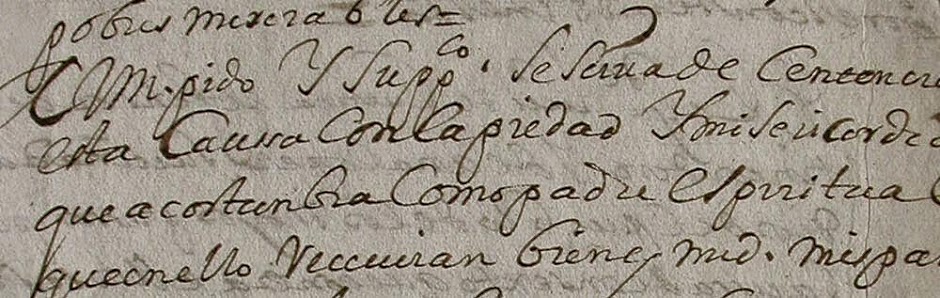 pobres miserables
Vm. pido Y supp^co. se sirva de Centenci
esta Caussa Con la piedad Y misericordia
que acostunbra Como padre espiritual
que en ello Recciviran bien y md. mis pa